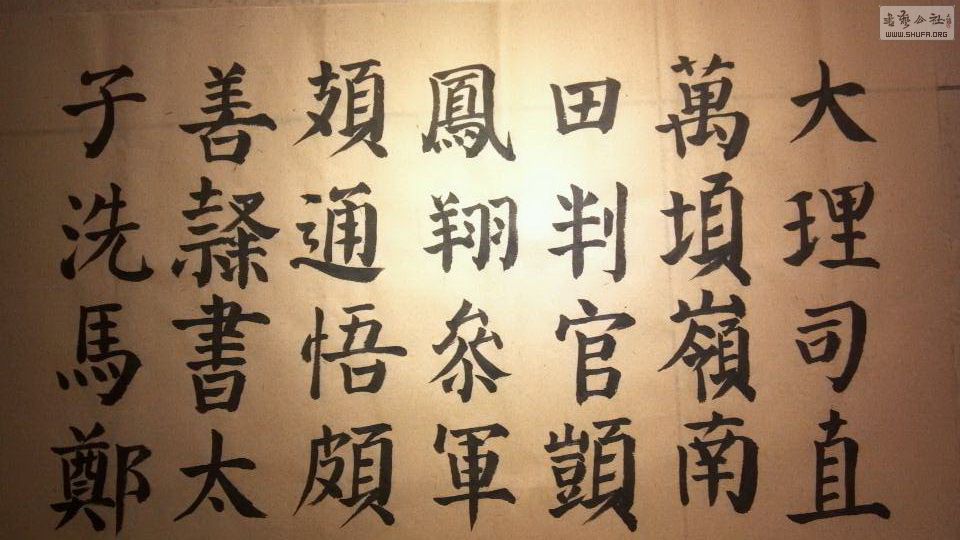 大理司直
萬頃嶺南
田判官顗
鳳翔叅軍
頍通悟頗
善隸書太
子洗馬鄭
书艺公社
WWW.SHUFA.ORG